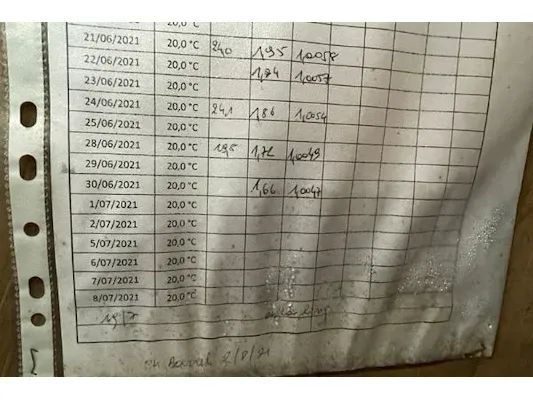 20,0 °C
21/06/2021 20,0 °C 240 1,95 1,0058
22/06/2021 20,0 °C 1,94 1,0057
23/06/2021 20,0 °C
24/06/2021 20,0 °C 24,1 1,86 1,0054
25/06/2021 20,0 °C
28/06/2021 20,0 °C 19,5 1,72 1,0049
29/06/2021 20,0 °C
30/06/2021 20,0 °C 1,66 1,0047
1/07/2021 20,0 °C
2/07/2021 20,0 °C
5/07/2021 20,0 °C
6/07/2021 20,0 °C
7/07/2021 20,0 °C
8/07/2021 20,0 °C
19/7
Barrel 2/8/21